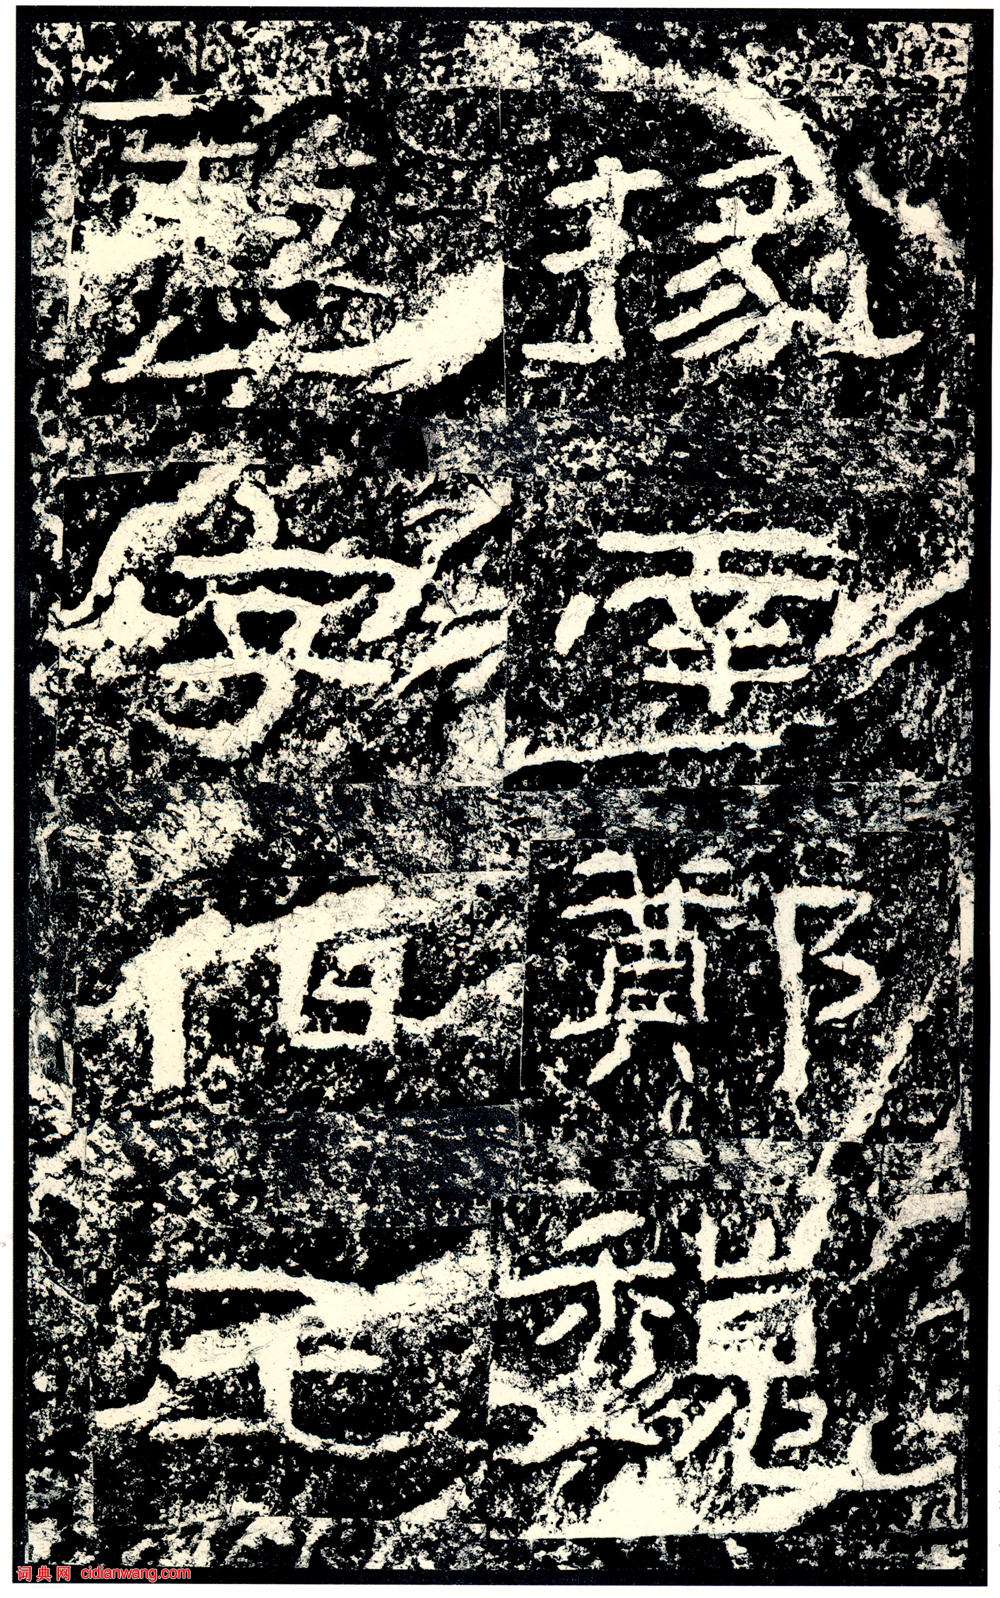 掾南鄭魏
整字伯玉
词典网 cidianwang.com